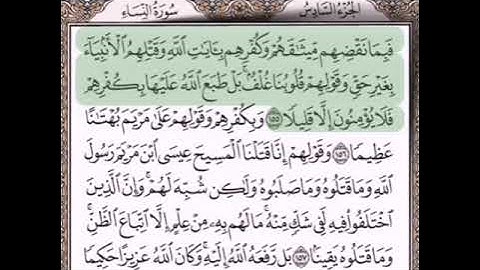 الجزء السادس سورة النساء
فَبِمَا نَقْضِهِم مِّيثَٰقَهُمْ وَكُفْرِهِم بِـَٔايَٰتِ ٱللَّهِ وَقَتْلِهِمُ ٱلْأَنۢبِيَآءَ
بِغَيْرِ حَقٍّ وَقَوْلِهِمْ قُلُوبُنَا غُلْفٌۢ ۚ بَلْ طَبَعَ ٱللَّهُ عَلَيْهَا بِكُفْرِهِمْ
فَلَا يُؤْمِنُونَ إِلَّا قَلِيلًا ١٥٥ وَبِكُفْرِهِمْ وَقَوْلِهِمْ عَلَىٰ مَرْيَمَ بُهْتَٰنًا
عَظِيمًا ١٥٦ وَقَوْلِهِمْ إِنَّا قَتَلْنَا ٱلْمَسِيحَ عِيسَى ٱبْنَ مَرْيَمَ رَسُولَ
ٱللَّهِ وَمَا قَتَلُوهُ وَمَا صَلَبُوهُ وَلَٰكِن شُبِّهَ لَهُمْ ۚ وَإِنَّ ٱلَّذِينَ
ٱخْتَلَفُوا۟ فِيهِ لَفِى شَكٍّ مِّنْهُ ۚ مَا لَهُم بِهِۦ مِنْ عِلْمٍ إِلَّا ٱتِّبَاعَ ٱلظَّنِّ ۚ
وَمَا قَتَلُوهُ يَقِينًۢا ١٥٧ بَل رَّفَعَهُ ٱللَّهُ إِلَيْهِ ۚ وَكَانَ ٱللَّهُ عَزِيزًا حَكِيمًا